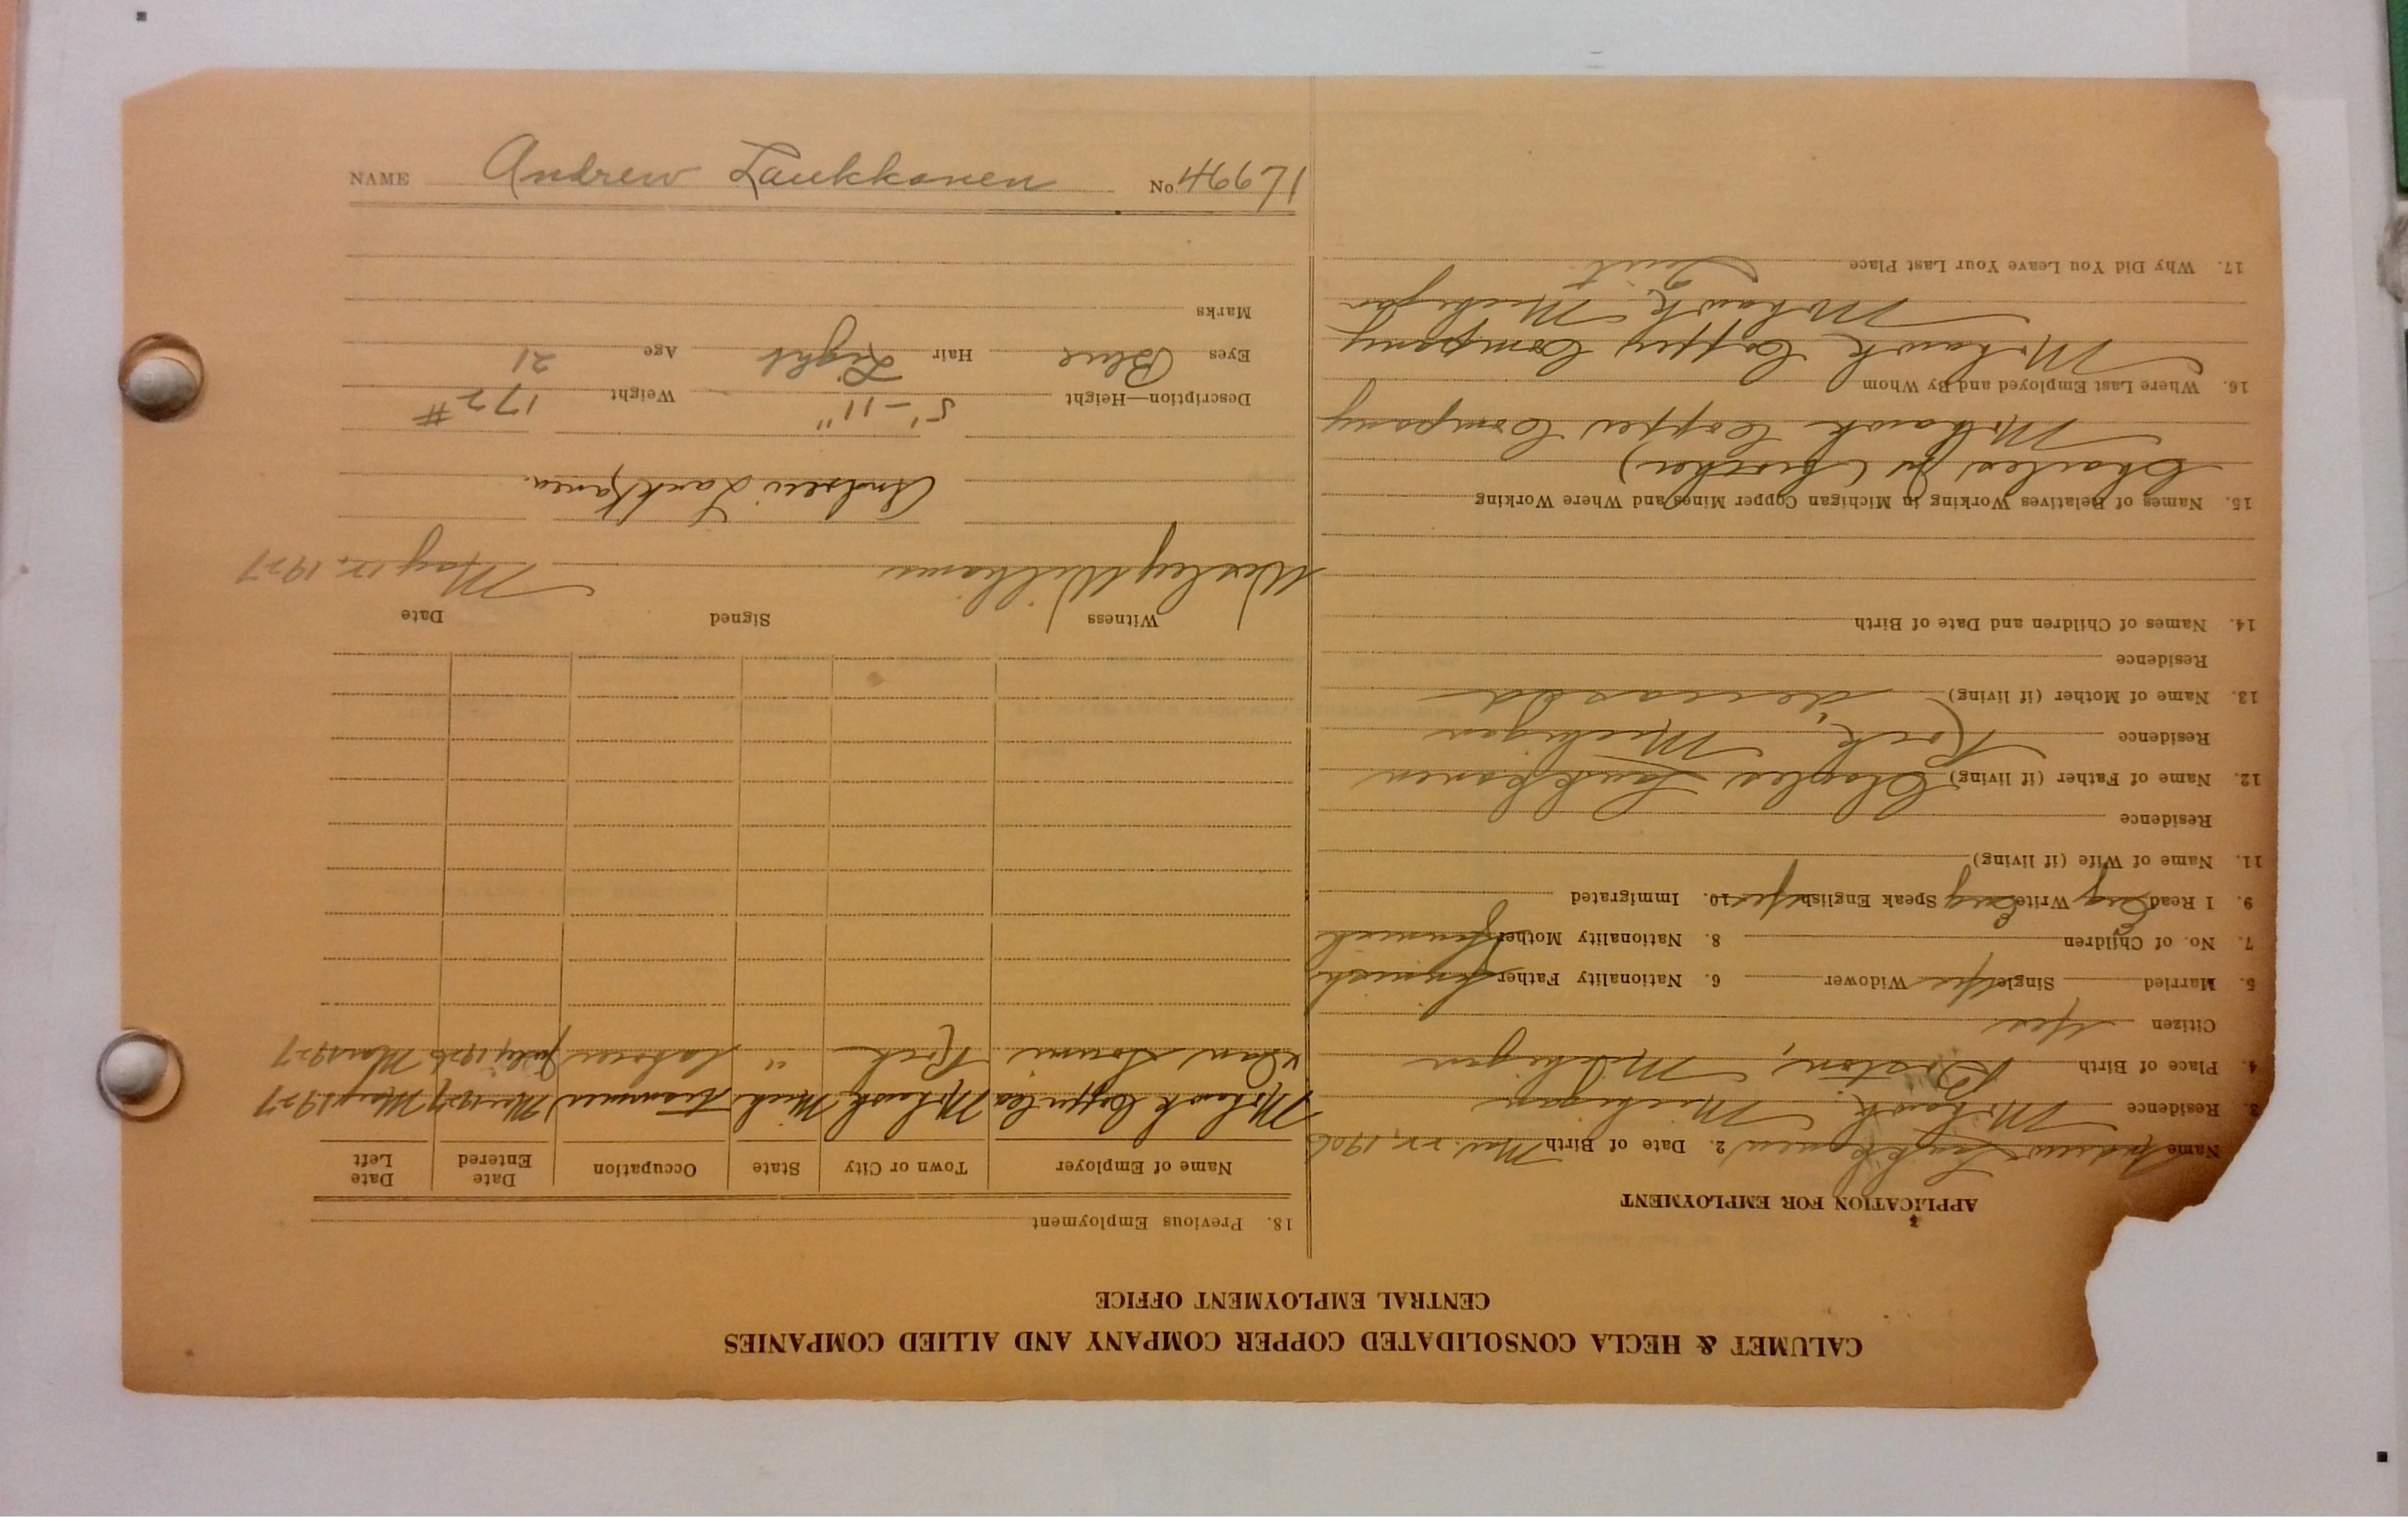 CALUMET & HECLA CONSOLIDATED COPPER COMPANY AND ALLIED COMPANIES
CENTRAL EMPLOYMENT OFFICE
APPLICATION FOR EMPLOYMENT
Name Andrew Laukkanen 2. Date of Birth 1906
3. Residence Mohawk, Michigan
4. Place of Birth Boston, Michigan
Citizen Yes
5. Married Single Yes Widower 6. Nationality Father Finnish
7. No. of Children 8. Nationality Mother Finnish
9. I Read Eng Write Eng Speak English Yes 10. Immigrated
11. Name of Wife (if living)
Residence
12. Name of Father (if living) Charles Laukkanen
Residence Rock, Michigan
13. Name of Mother (if living)
Residence
14. Names of Children and Date of Birth
15. Names of Relatives Working in Michigan Copper Mines and Where Working
Charles Jr (brother)
Mohawk Copper Company
16. Where Last Employed and By Whom
Mohawk Copper Company
Mohawk, Michigan
17. Why Did You Leave Your Last Place Quit
18. Previous Employment
Name of Employer Town or City State Occupation Date Entered Date Left
Mohawk Copper Co Mohawk Mich Trammer Mar 1927 May 1927
Rock " Laborer July 1926 Mar 1927
Witness Signed Date
Wesley Williams May 1927
Andrew Laukkanen
Description—Height 5'-11" Weight 172#
Eyes Blue Hair Light Age 21
Marks
NAME Andrew Laukkanen No. 46671